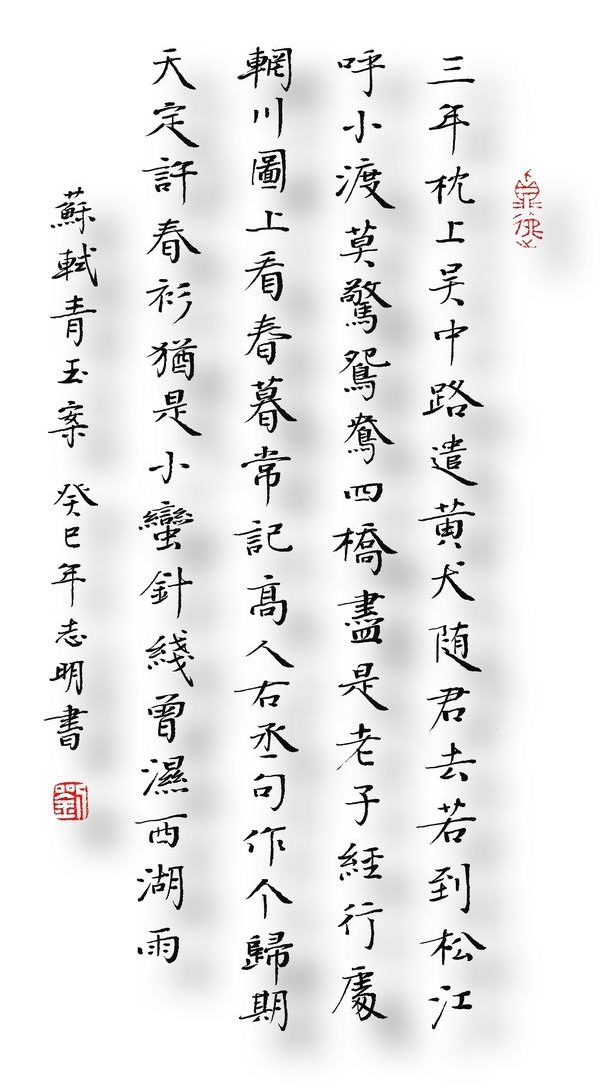 三年枕上吴中路遣黄犬随君去若到松江
呼小渡莫驚鴛鴦四橋盡是老子經行處
輞川圖上看春暮常記高人右丞句作个歸期
天定許春衫猶是小蠻針綫曾濕西湖雨
蘇軾青玉案 癸巳年志明書
劉